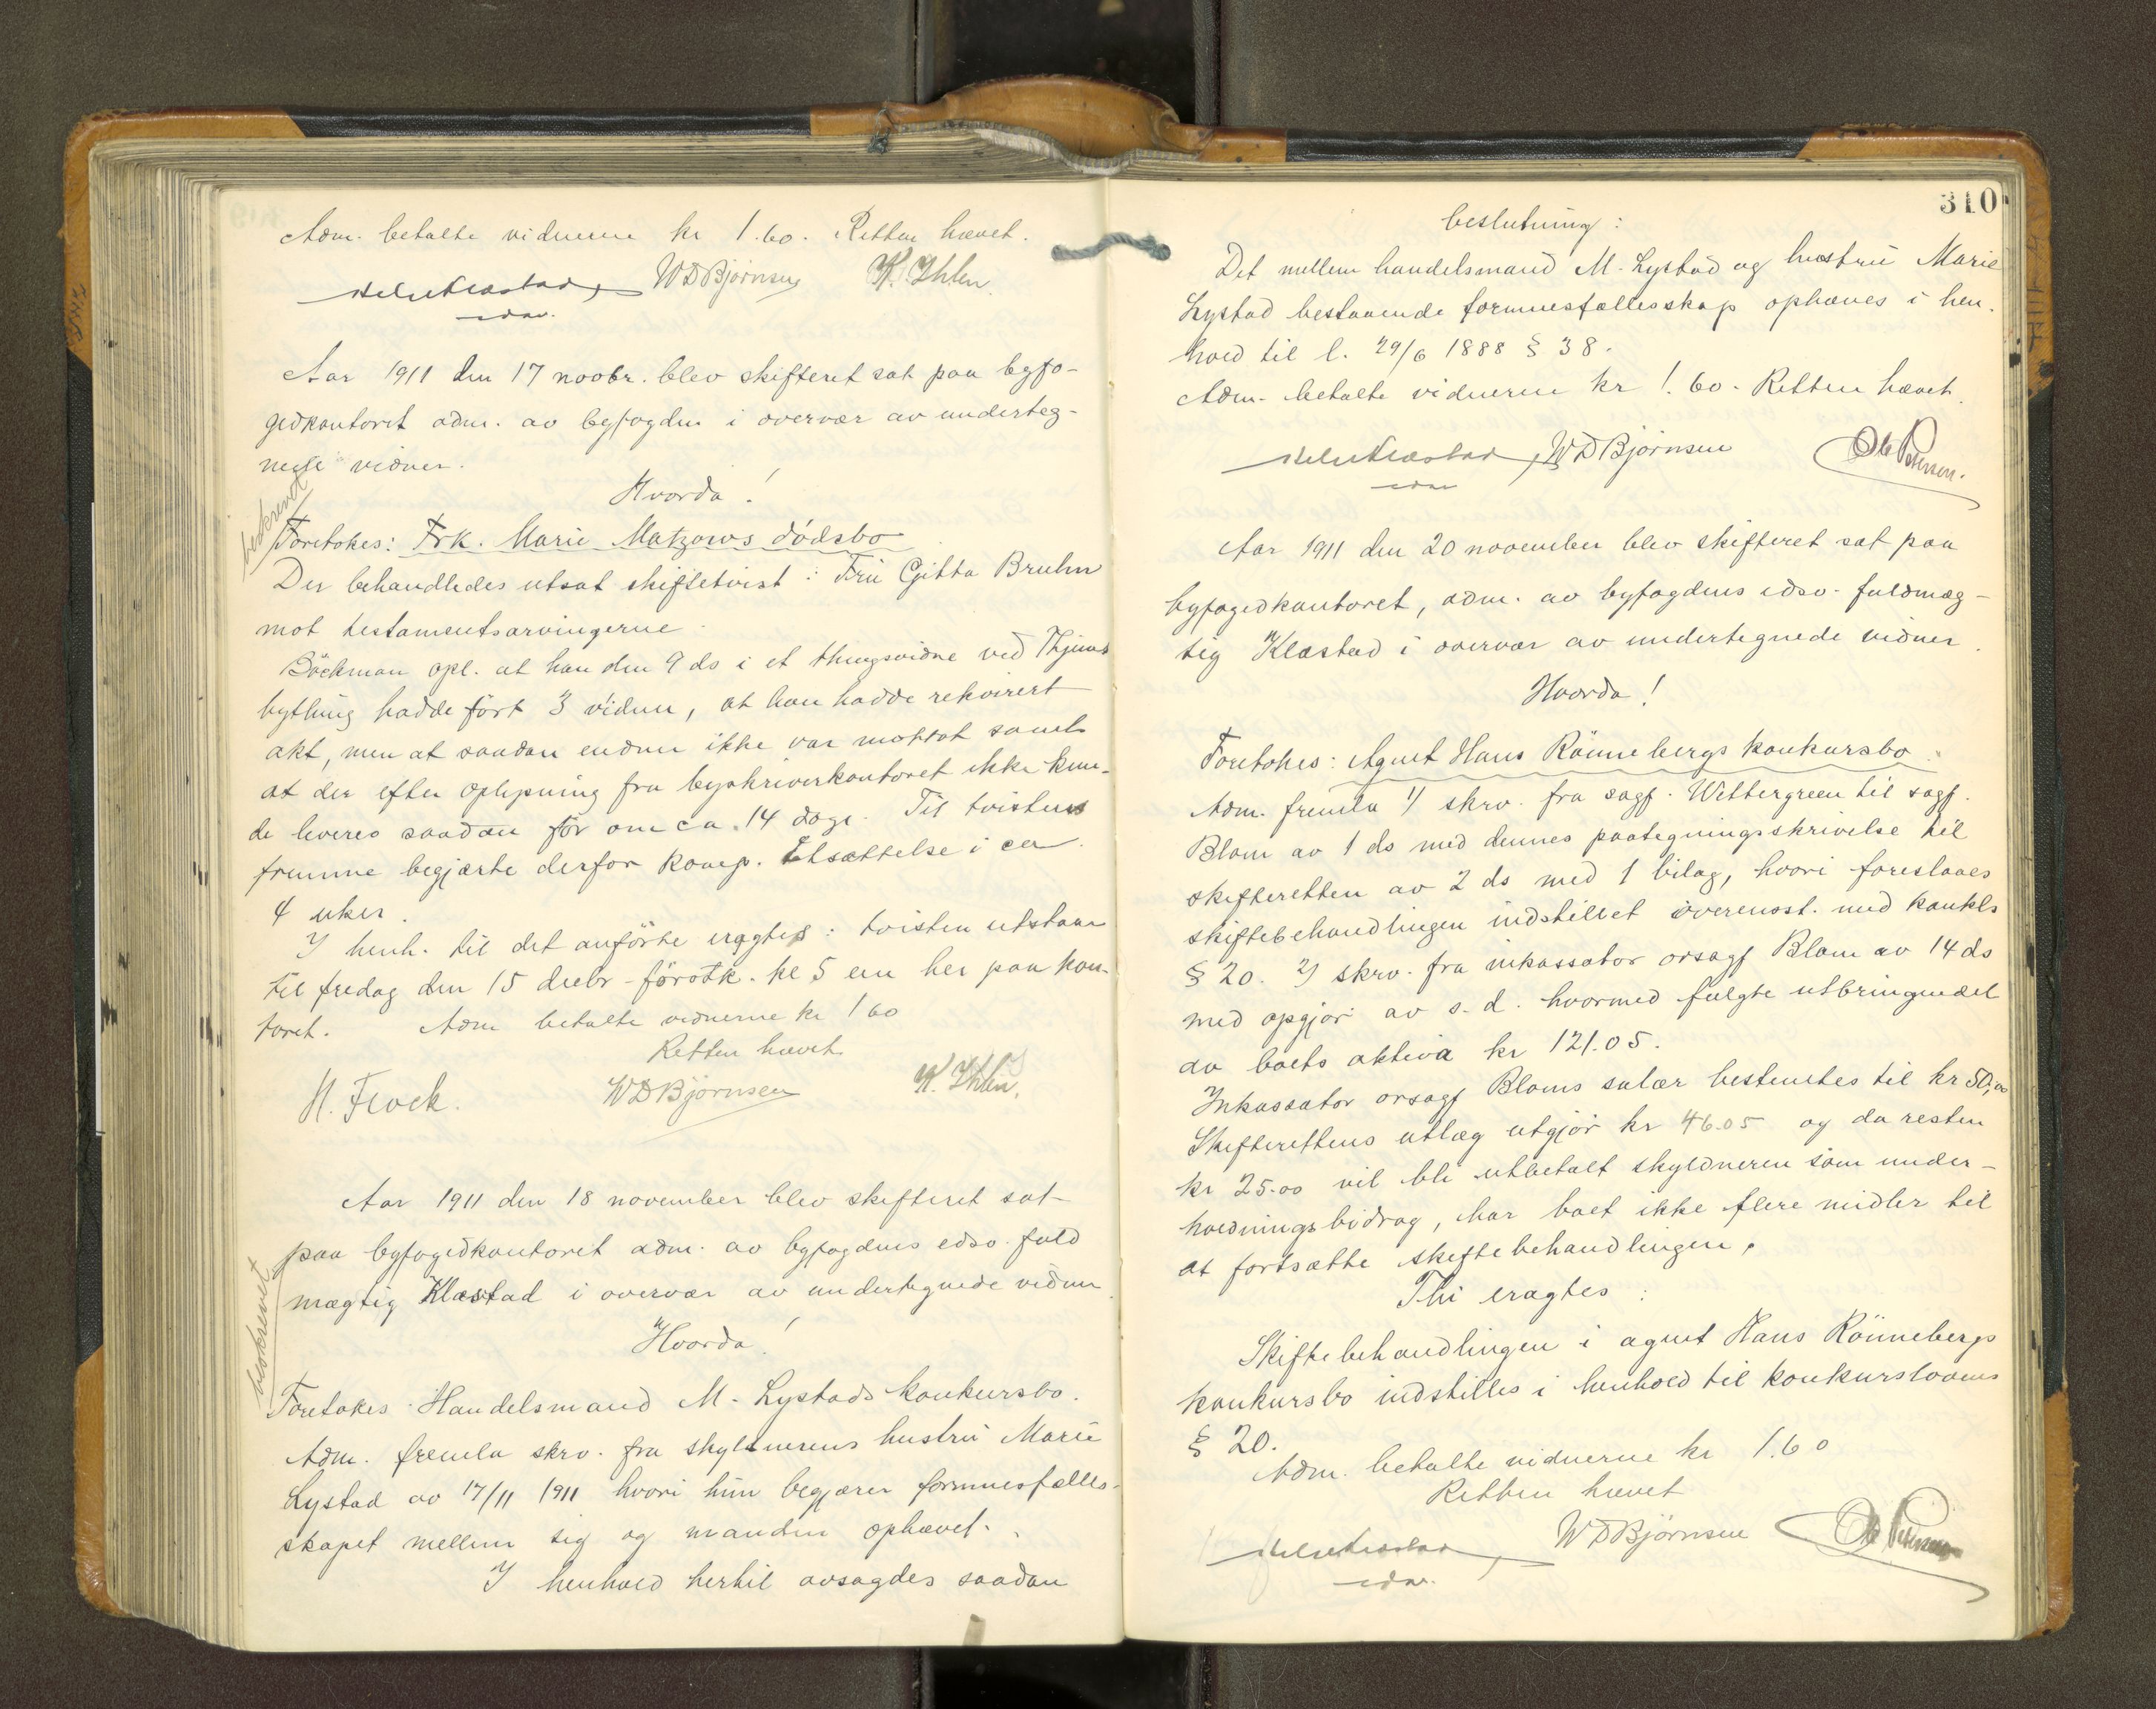 Adm. betalte vidnerne kr 1.60. Retten hævet.
WDBjørnsen K. Ihlen
edsv.
Aar 1911 den 17 novbr. blev skifteret sat paa byfo-
gedkontoret adm. av byfogden i overvær av underteg-
nede vidner.
Hvorda!
beskrevet
Foretokes: Frk. Marie Matzows dödsbo
Der behandledes utsat skiftetvist: Fru Gitta Bruhn
mot testamentsarvingerne.
Böckman opl. at han den 9 ds i et thingsvidne ved
bything hadde fört 3 vidner, at han hadde rekvirert
akt, men at saadan endnu ikke var mottat samt
at der efter oplysning fra byskriverkontoret ikke kun-
de leveres saadan för om ca. 14 dage. Til tvistens
fremme begjærte derfor komp. utsættelse i ca
4 uker.
I henh. til det anförte eragtes: tvisten utstaar
til fredag den 15 decbr. förstk. kl 5 em her paa kon-
toret. Adm betalte vidnerne kr 1 60
Retten hævet
H. Flock. WDBjørnsen K. Ihlen.
Aar 1911 den 18 november blev skifteret sat
paa byfogedkontoret adm. av byfogdens edsv. fuld
mægtig Klæstad i overvær av undertegnede vidner.
Hvorda!
beskrevet
Foretokes Handelsmand M. Lystads konkursbo.
Adm. fremla skrv. fra skyldnerens hustru Marie
Lystad av 17/11 1911 hvori hun begjærer formuesfælles-
skapet mellem sig og manden ophævet.
I henhold hertil avsagdes saadan
310
beslutning:
Det mellem handelsmand M. Lystad og hustru Marie
Lystad bestaaende formuesfællesskap ophæves i hen-
hold til l. 29/6 1888 § 38.
Adm. betalte vidnerne kr 1.60. Retten hævet.
WDBjørnsen Ole Petersen.
edsv
Aar 1911 den 20 november blev skifteret sat paa
byfogedkontoret, adm. av byfogdens edsv. fuldmæg-
tig Klæstad i overvær av undertegnede vidner.
Hvorda!
Foretokes: Agent Hans Rönnebergs konkursbo.
Adm. fremla 1) skrv. fra sagf. Wettergreen til sagf.
Blom av 1 ds med dennes paategningsskrivelse til
skifteretten av 2 ds med 1 bilag, hvori foreslaaes
skiftebehandlingen indstillet overensst. med konkls
§ 20. 2) skrv. fra inkassator orsagf Blom av 14 ds
med opgjør av s. d. hvormed fulgte utbringendet
av boets aktiva kr 121.05.
Inkassator orsagf Bloms salær bestemtes til kr 50,00
Skifterettens utlæg utgjør kr 46.05 og da resten
kr 25.00 vil bli utbetalt skyldneren som under-
holdningsbidrag, har boet ikke flere midler til
at fortsætte skiftebehandlingen.
Thi eragtes:
Skiftebehandlingen i agent Hans Rönnebergs
konkursbo indstilles i henhold til konkurslovens
§ 20.
Adm. betalte vidnerne kr 1.60
Retten hævet
WDBjørnsen Ole Petersen
edsv.